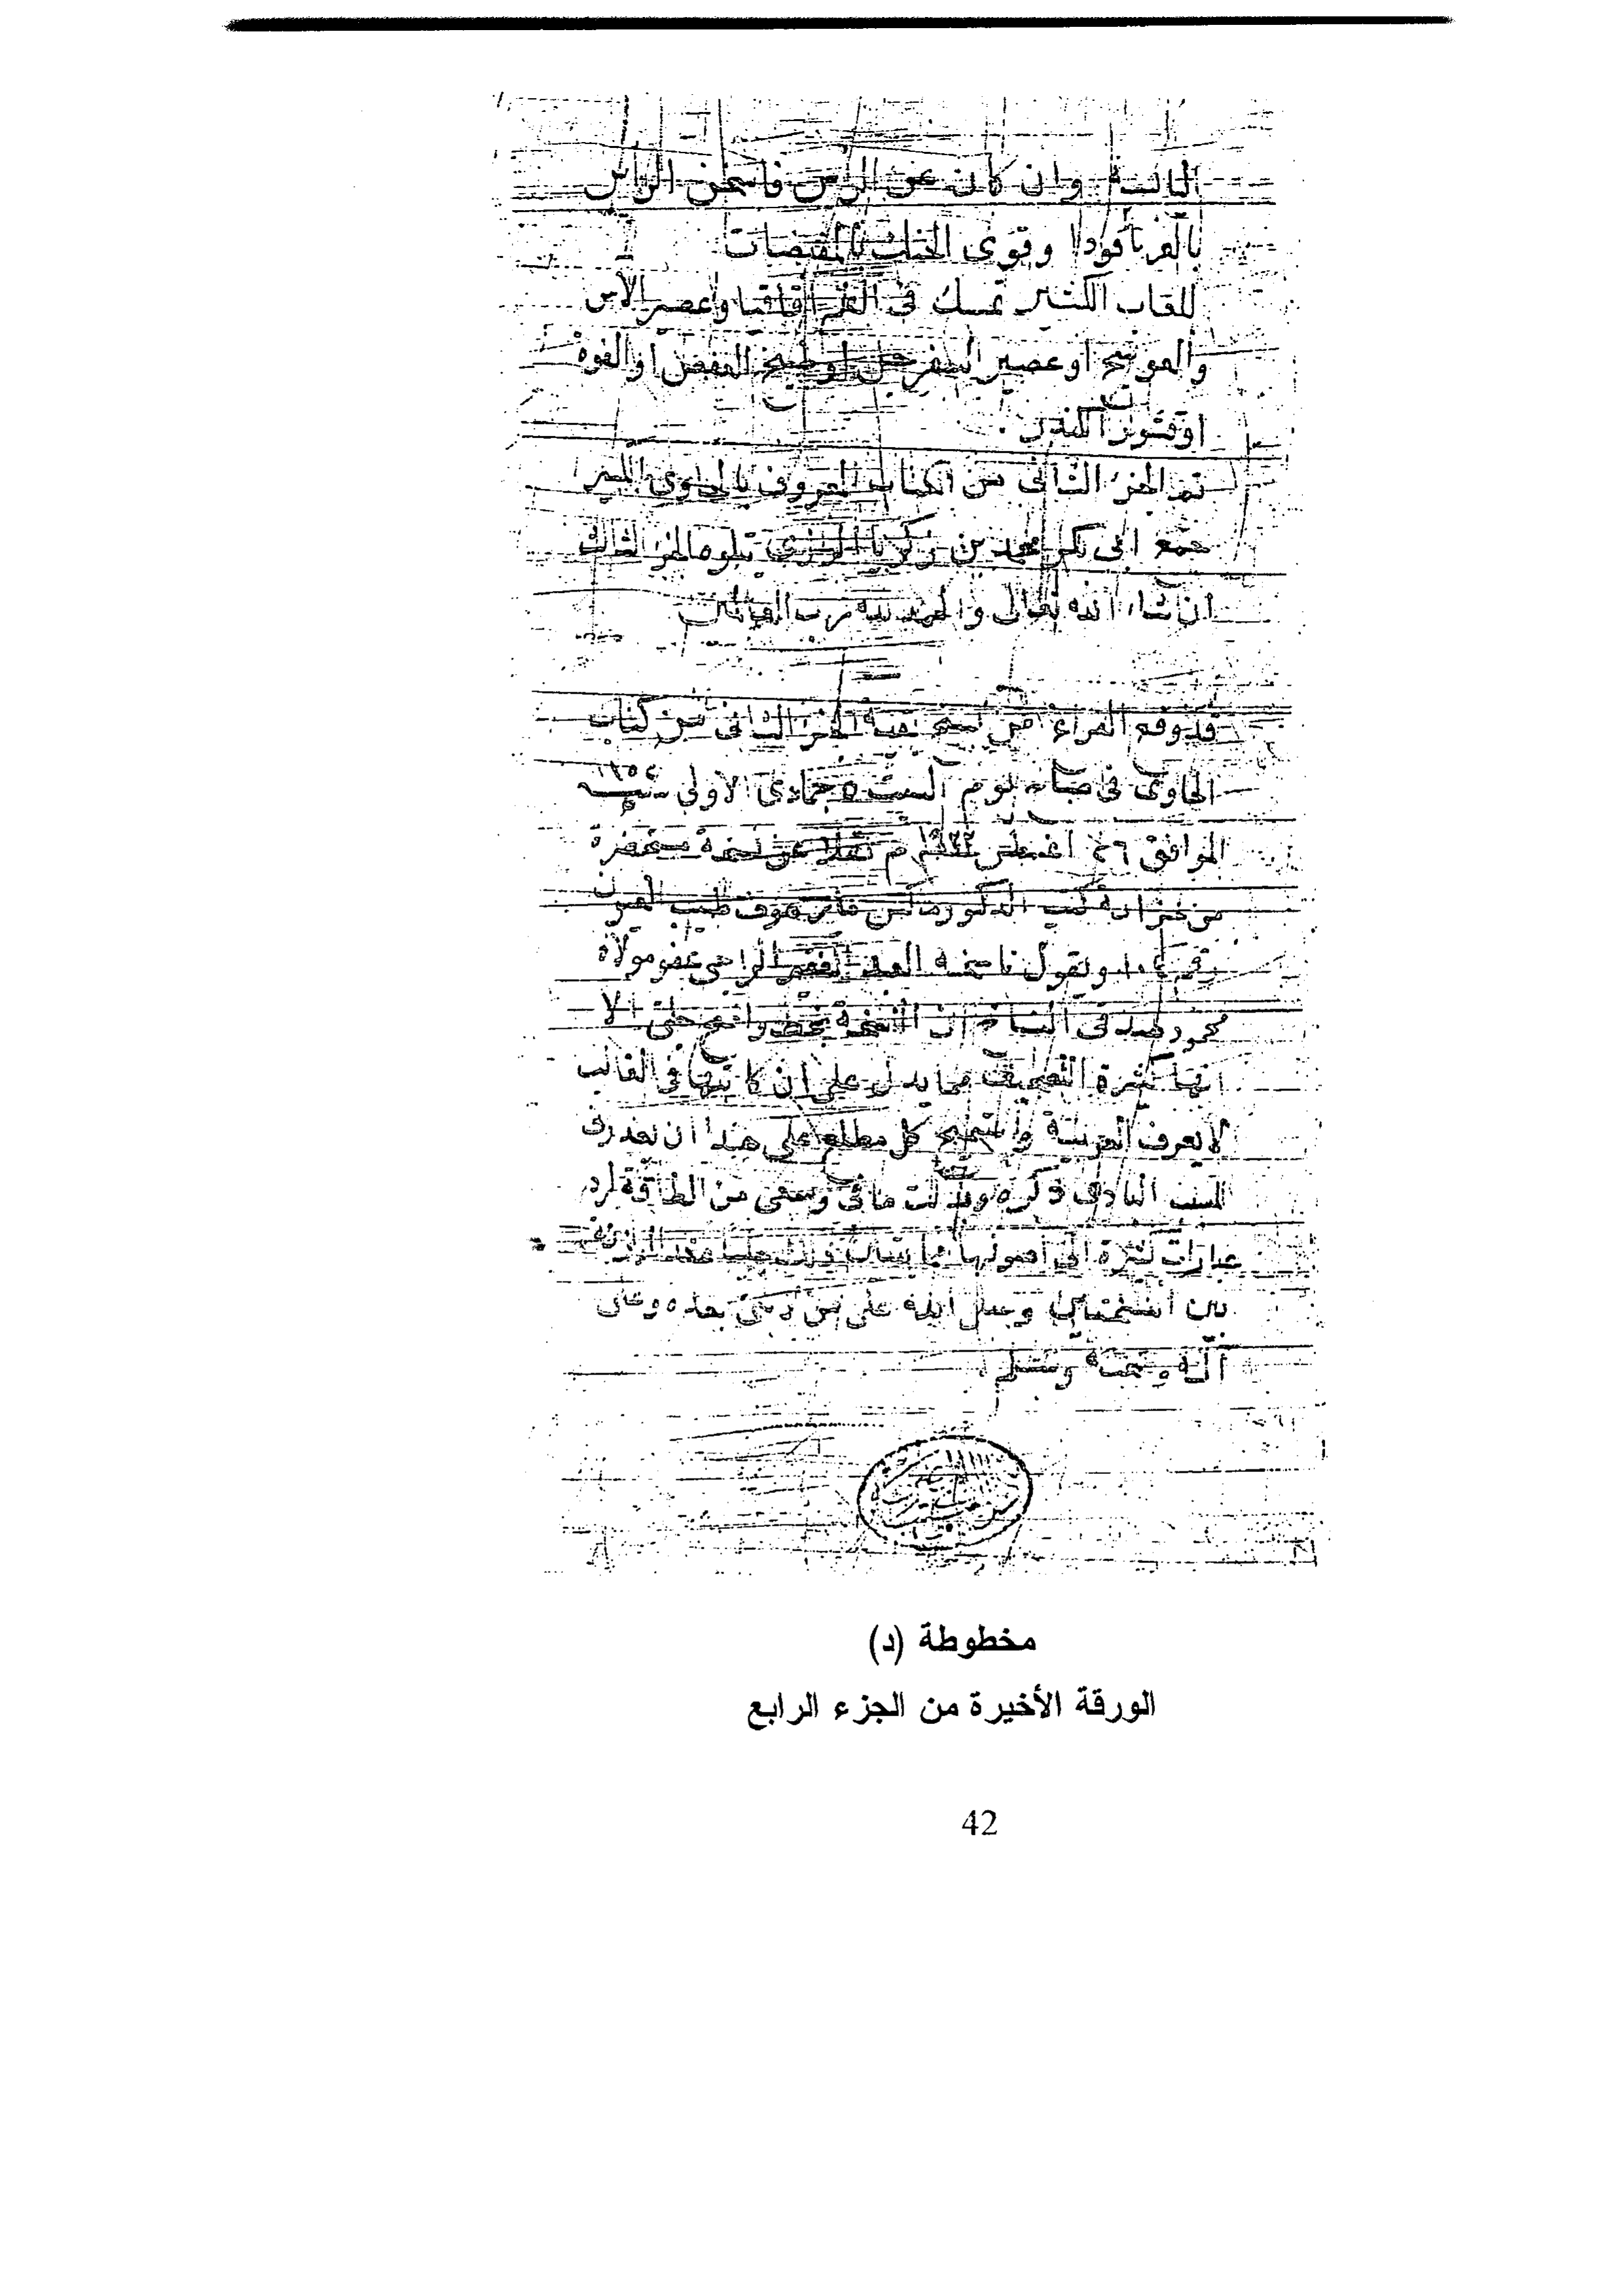 وان كان عن الراس فاسخن الراس
وقوى الحنك بالمقبضات
للعاب الكثير تمسك فى الفم اقاقيا وعصير الآس
والعوسج او عصير السفرجل او طبيخ العفص او الفوة
او قشور الكندر
تم الجزء الثانى من الكتاب المعروف بالحاوى
جمع ابى بكر محمد بن زكريا الرازى يتلوه الجزء الثالث
ان شاء الله تعالى والحمد لله رب العالمين
قد وقع الفراغ من نسخ هذا الجزء الثانى من كتاب
الحاوى فى صباح يوم السبت جمادى الاولى سنة
الموافق اغسطس م نقلا عن نسخة مستحضرة
من خزانة كتب الدكتور ماكس مايرهوف طبيب العيون
ويقول ناسخه العبد الفقير الراجى عفو مولاه
محمود صدقى النساخ ان النسخة بخط واضح جلى الا
انها كثيرة التصحيف مما يدل على ان كاتبها فى الغالب
لا يعرف العربية كل مطلع على هذا ان يعذرنى
للسبب البادى ذكره وبذلت ما فى وسعى من الطاقة لرد
عبارات كثيرة الى اصولها
وصلى الله على من لا نبى بعده وعلى
آله وصحبه وسلم
مخطوطة (د)
الورقة الأخيرة من الجزء الرابع
42